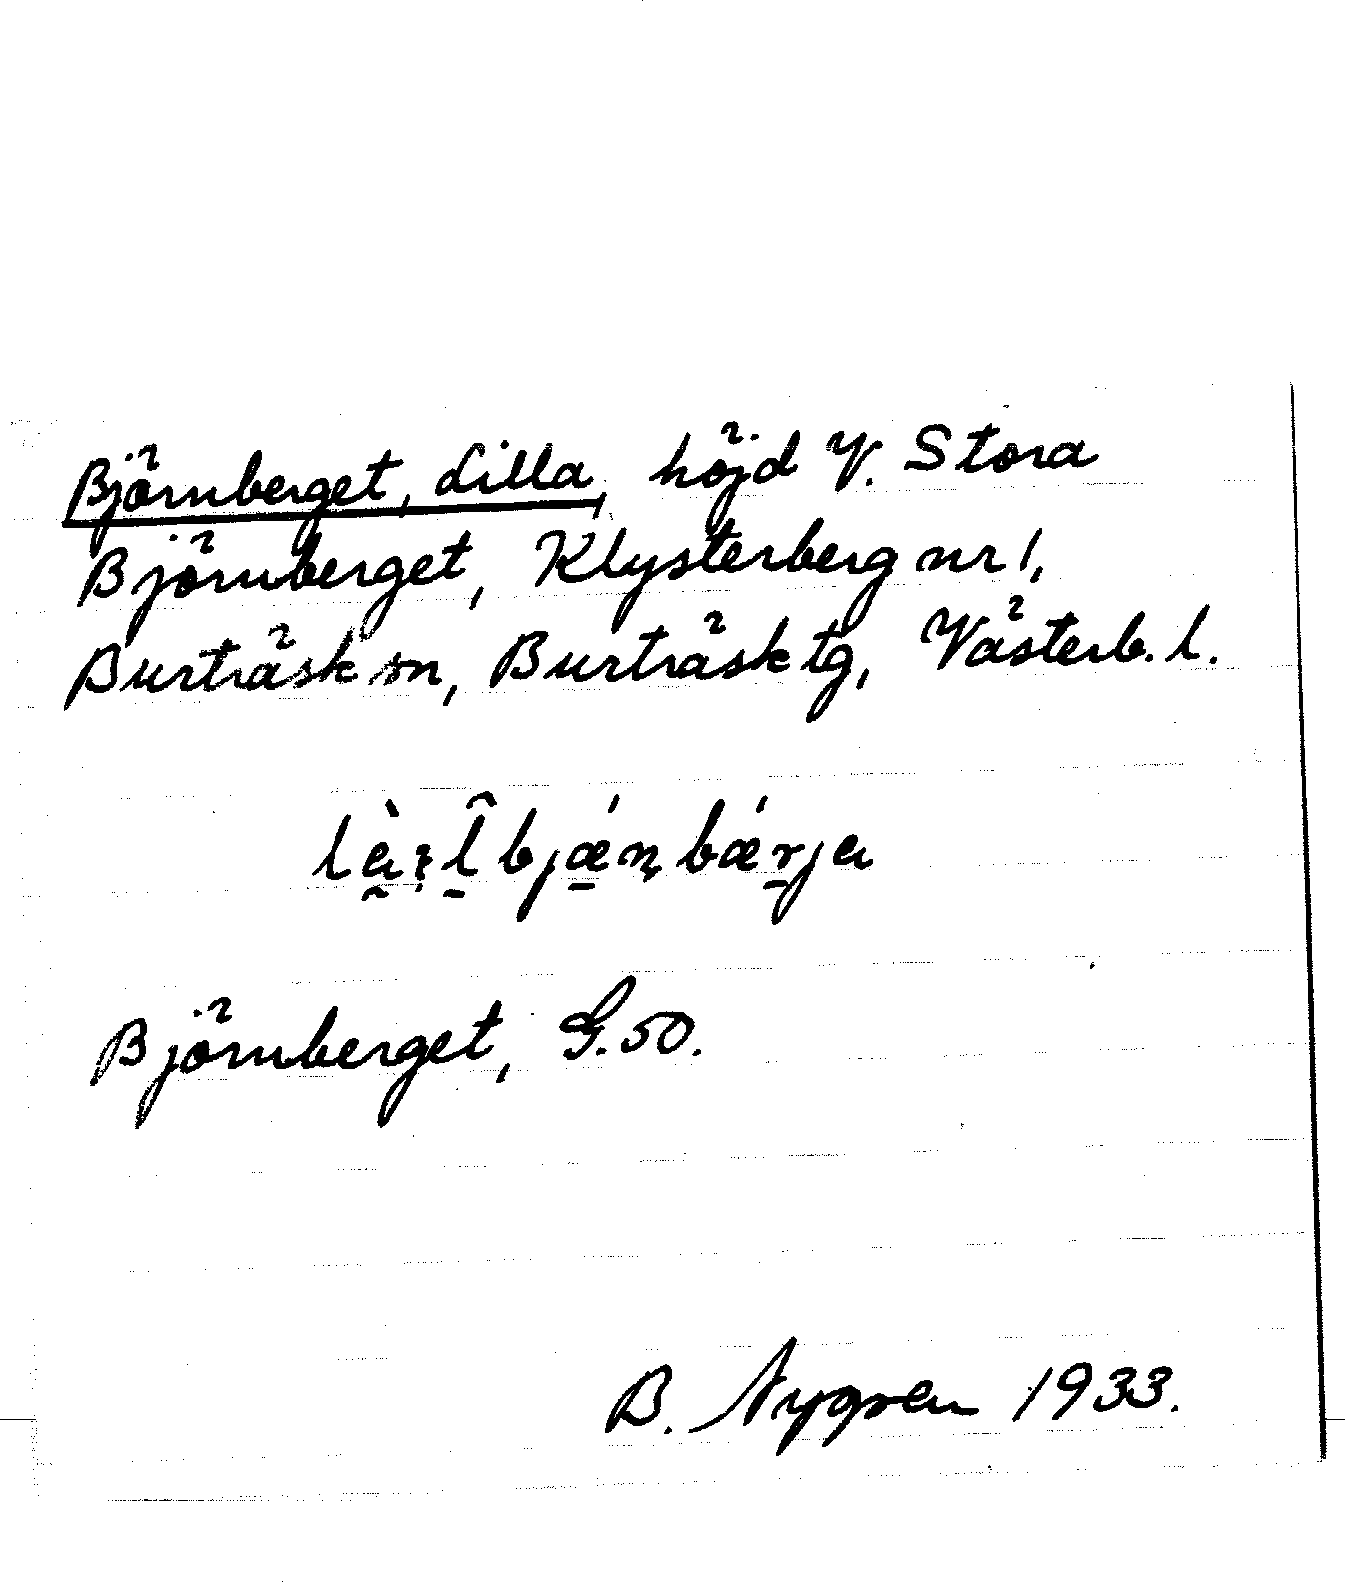 Björnberget, Lilla, höjd V. Stora
Björnberget, Klysterberg nr 1,
Burträsk sn, Burträsk tg, Västerb. l.
bjǽn̥bǽrja
Björnberget, G.50.
B. Nygren 1933.